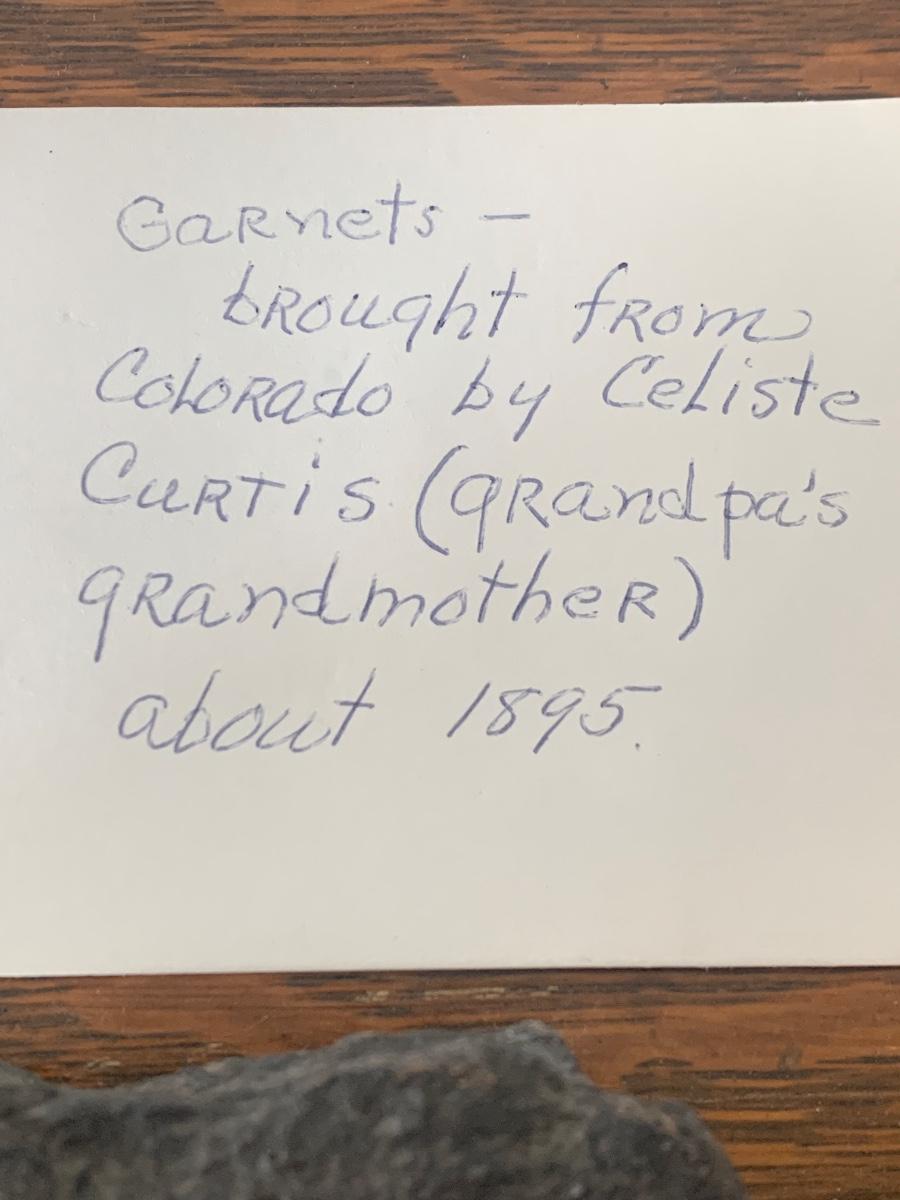 Garnets —
brought from
Colorado by Celiste
Curtis (grandpa's
grandmother)
about 1895.